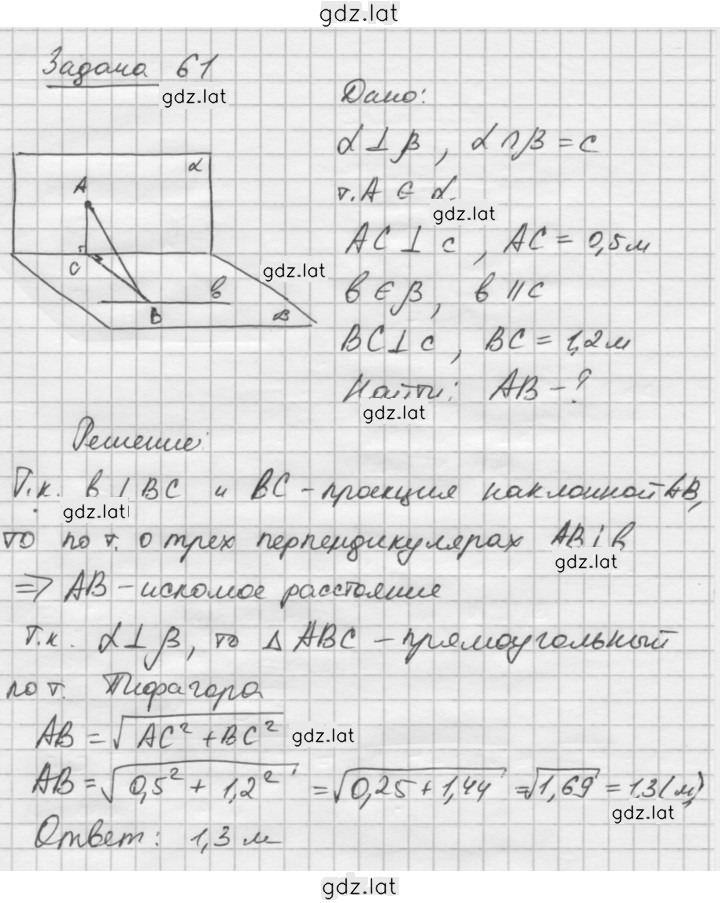 gdz.lat
Задача 61
gdz.lat
Дано:
α ⊥ β, α ∩ β = c
т. A ∈ α
gdz.lat
AC ⊥ c, AC = 0,5м
b ∈ β, b || c
BC ⊥ c, BC = 1,2м
Найти: AB - ?
gdz.lat
α
A
C
gdz.lat
b
B
β
Решение:
Т.к. b ⊥ BC и BC - проекция наклонной AB,
gdz.lat
то по т. о трех перпендикулярах AB ⊥ b
gdz.lat
=> AB - искомое расстояние
Т.к. α ⊥ β, то Δ ABC - прямоугольный
по т. Пифагора
AB = √AC² + BC² gdz.lat
AB = √0,5² + 1,2² = √0,25 + 1,44 = √1,69 = 1,3 (м)
gdz.lat
Ответ: 1,3 м
gdz.lat